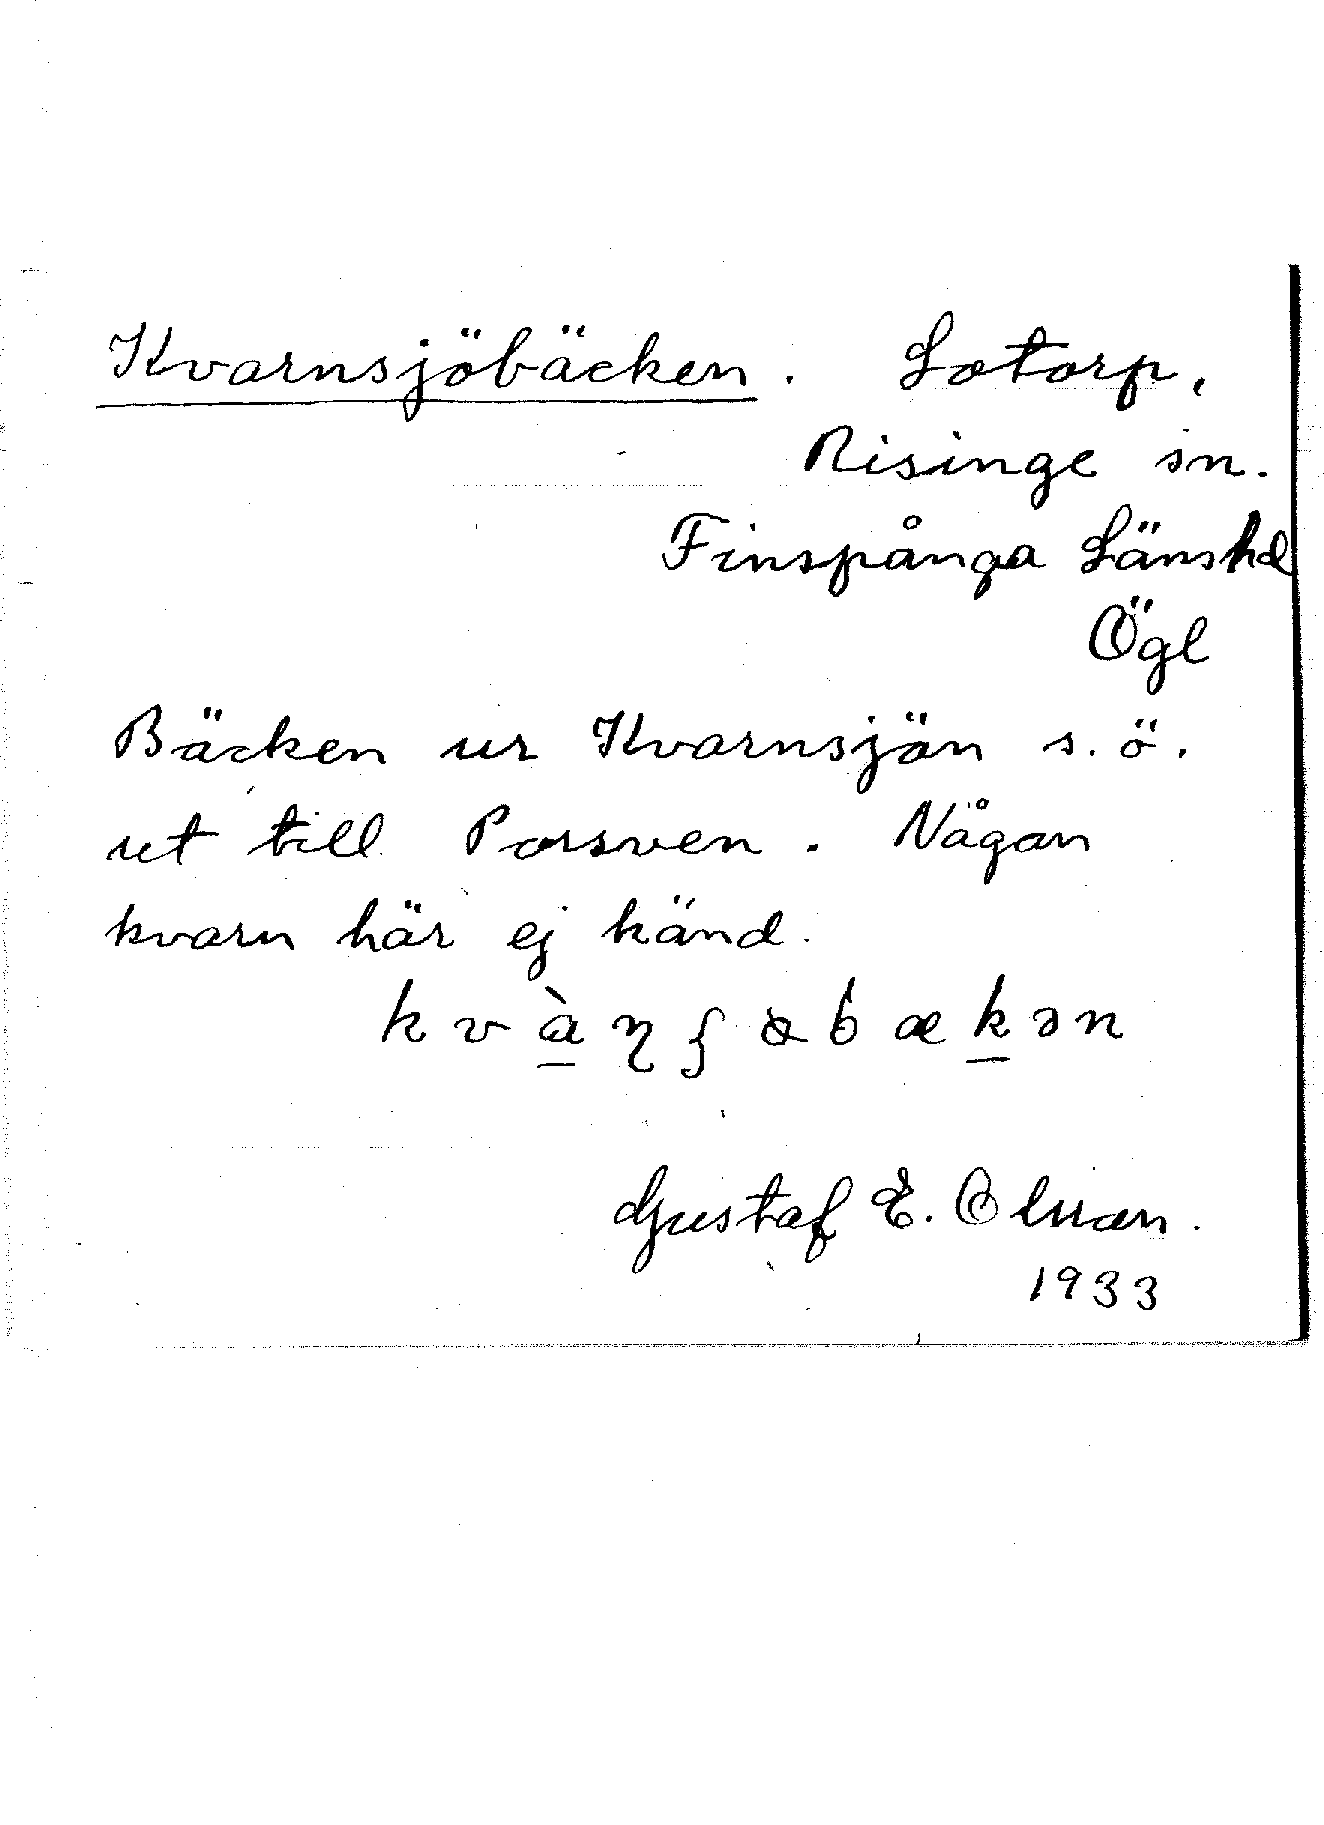 Kvarnsjöbäcken. Lotorp,
Risinge sn.
Finspånga Länshd
Ögl
Bäcken ur Kvarnsjön s.ö.
ut till Porsven. Någon
kvarn här ej känd.
Gustaf E.
1933